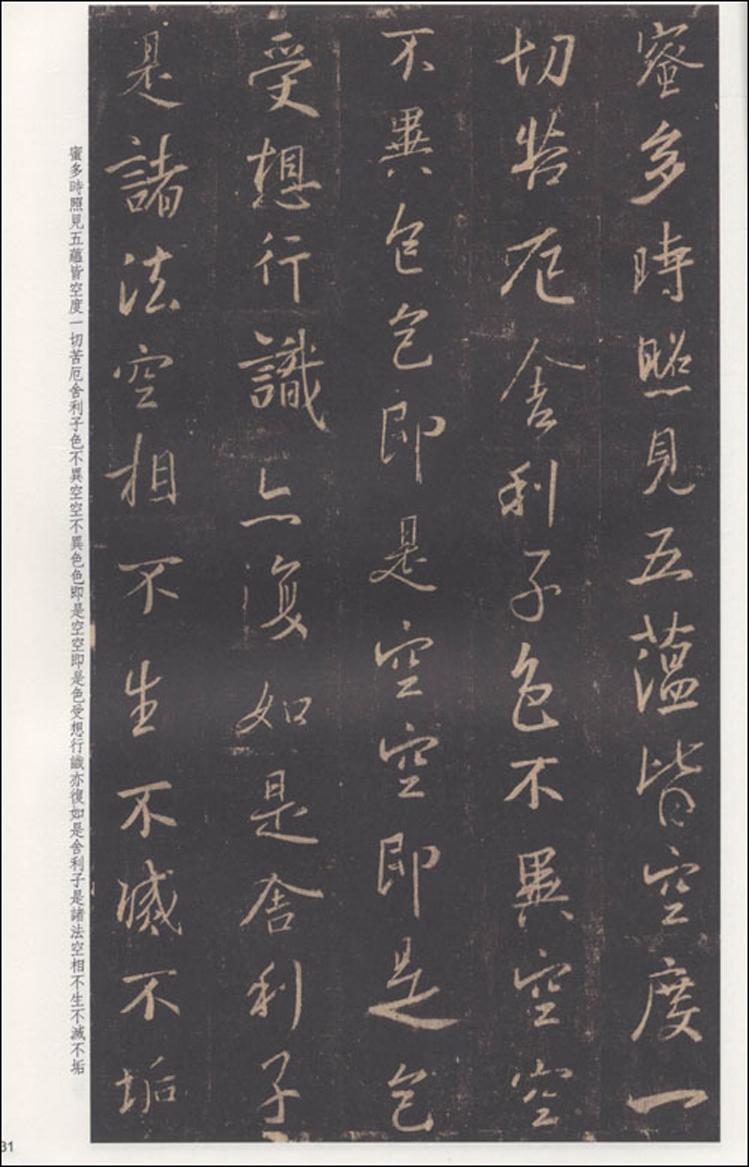 蜜多時照見五蘊皆空度一
切苦厄舍利子色不異空空
不異色色即是空空即是色
受想行識亦復如是舍利子
是諸法空相不生不滅不垢
蜜多時照見五蘊皆空度一切苦厄舍利子色不異空空不異色色即是空空即是色受想行識亦復如是舍利子是諸法空相不生不滅不垢
31